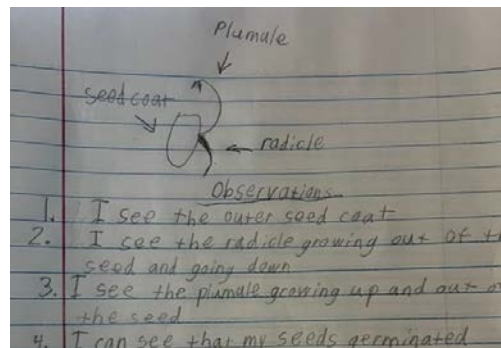 Plumale
seed coat
radicle
Observations
1. I see the outer seed coat
2. I see the radicle growing out of
seed and going down
3. I see the plumale growing up and out
the seed
4. I can see that my seeds germinated